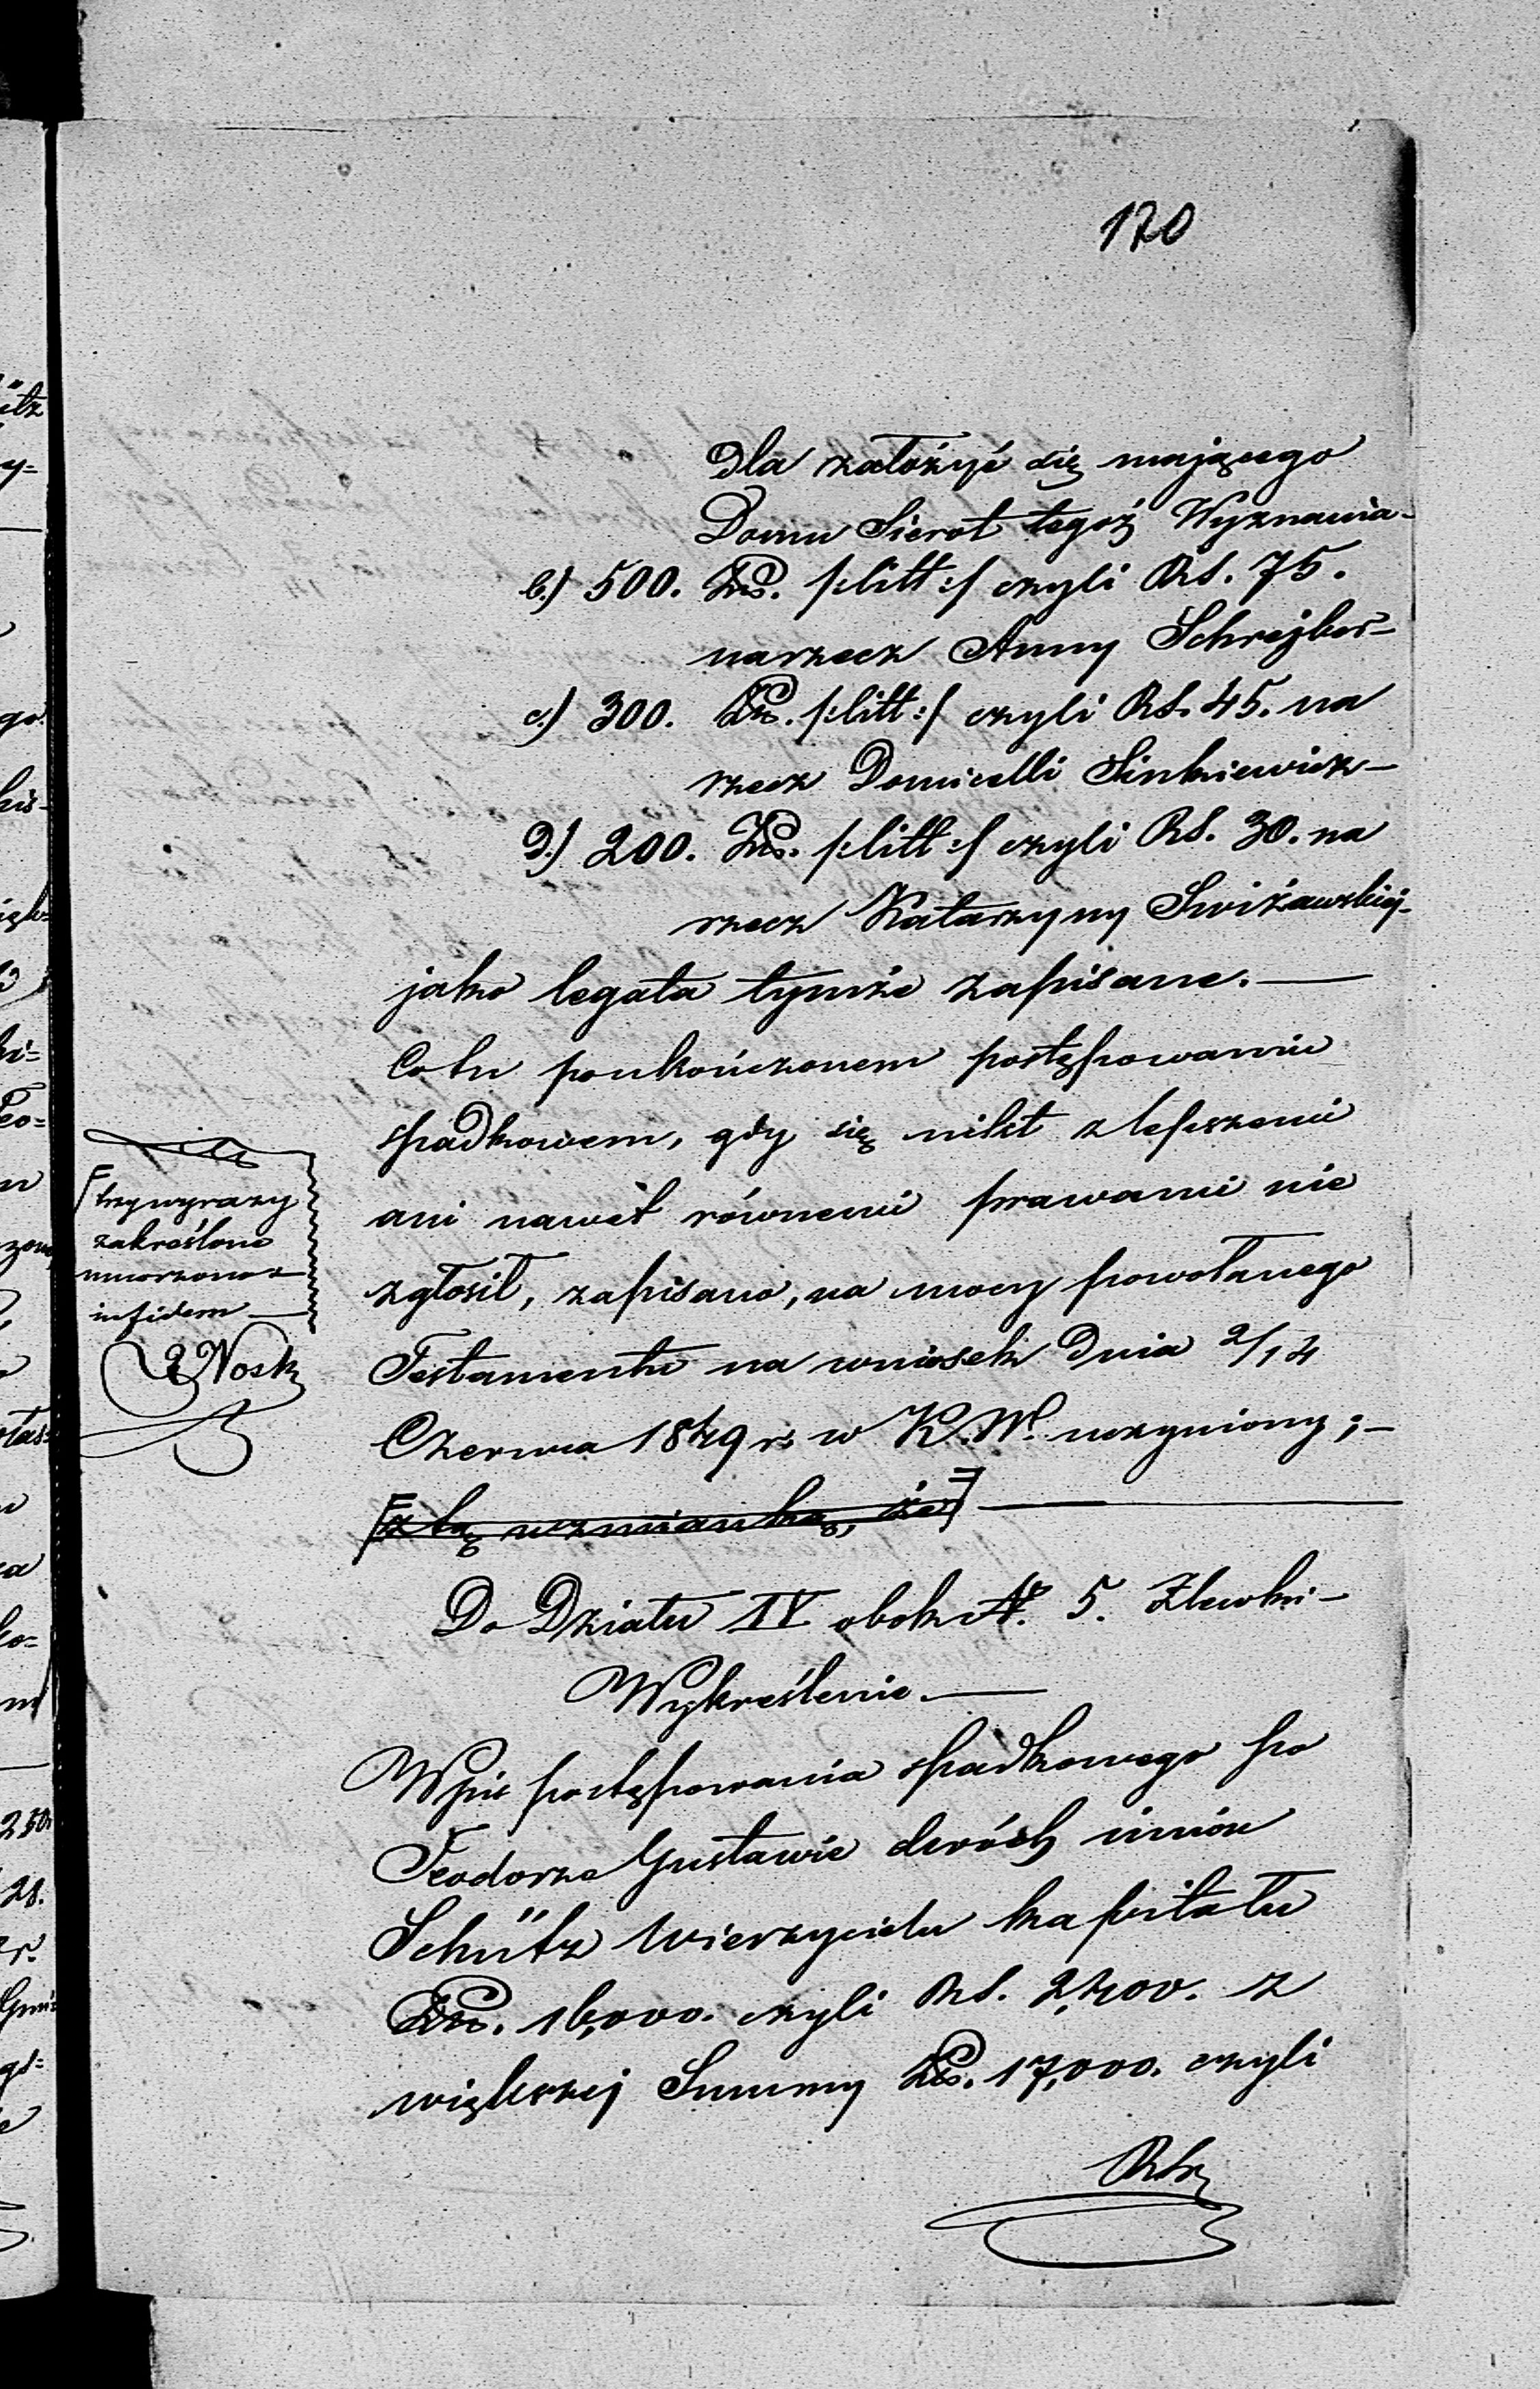 170
dla założyć się mającego
Domu Sierot tegoż Wyznania –
b.) 500. Złp. /:litt:/ czyli RS. 75.
narzecz Anny Schrejber –
c.) 300. Złp. /:litt:/ czyli RS. 45. na
rzecz Domicelli Sinkiewicz –
d.) 200. Złp. /:litt:/ czyli RS. 30. na
rzecz Katarzyny Swiżawskiej –
jako legata tymże zapisane. —
Co tu poukończonem postępowaniu
spadkowem, gdy się nikt z lepszemi
ani nawet równemi prawami nie
zgłosił, zapisano, na mocy powołanego
Testamentu na wniosek dnia 2/14
Czerwca 1849 r. w K.W. uczyniony; –
[z tą wzmianką, że] —
Do Działu IV obok N. 5. Zlewki –
Wykreślenie. —
Wpis postępowania spadkowego po
Teodorze Gustawie dwóch imion
Schütz Wierzycielu kapitału
Złp. 16,000. czyli RS. 2,400. z
większej Summy Złp. 17,000. czyli
trzy wyrazy
zakreślone
umorzono
in fidem —
Nosk